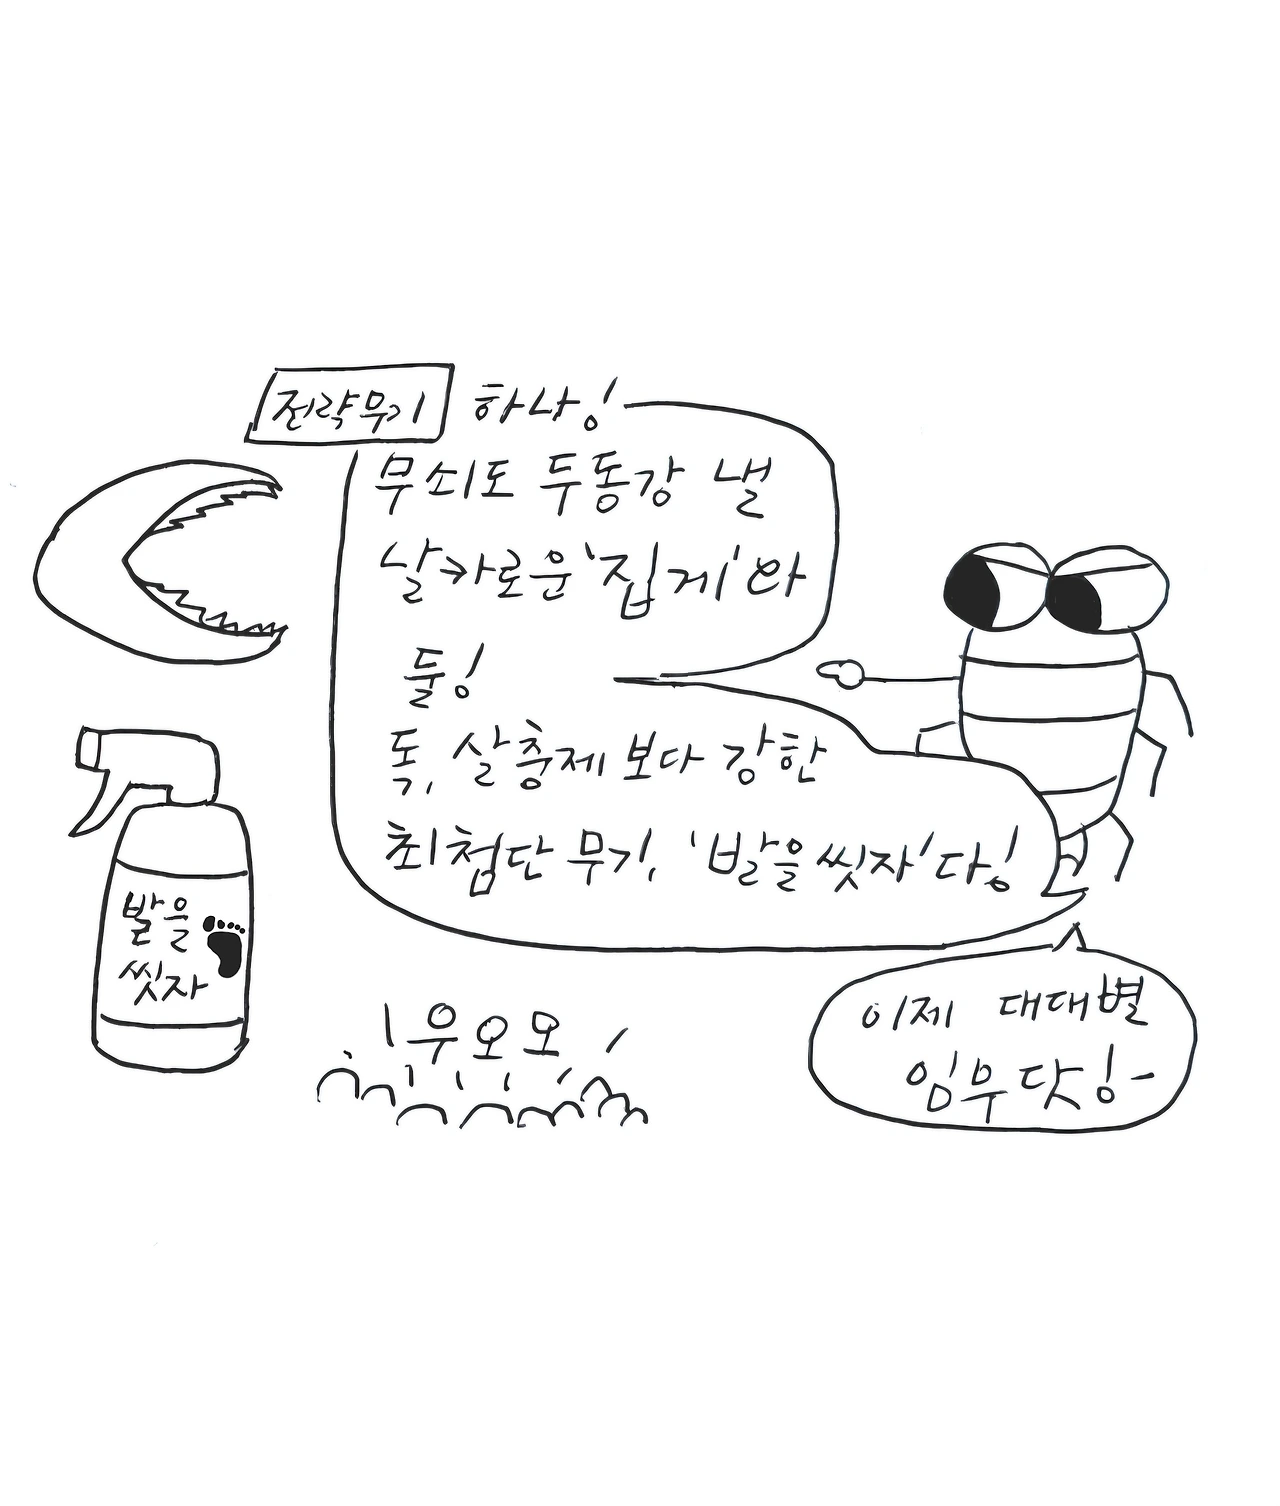 전략무기 하나!
무쇠도 두동강 낼
날카로운 '집게'와
둘!
독, 살충제 보다 강한
최첨단 무기, '발을씻자'다!
발을
씻자
우오오
이제 대대별
임무닷!-